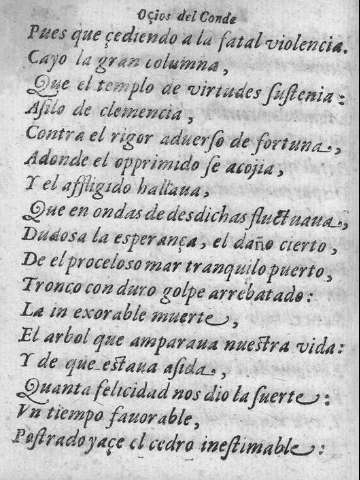 Oçios del Conde
Pues que çediendo a la fatal violencia.
Cayo la gran columna,
Que el templo de virtudes sustenia:
Asilo de clemencia,
Contra el rigor aduerso de fortuna,
Adonde el opprimido se acojia,
Y el affligido hallaua,
Que en ondas de desdichas fluctuaua,
Dudosa la esperança, el daño cierto,
De el proceloso mar tranquilo puerto,
Tronco con duro golpe arrebatado:
La in exorable muerte,
El arbol que amparaua nuestra vida:
Y de que estaua asida,
Quanta felicidad nos dio la suerte:
Vn tiempo fauorable,
Postrado yaçe el cedro inestimable: